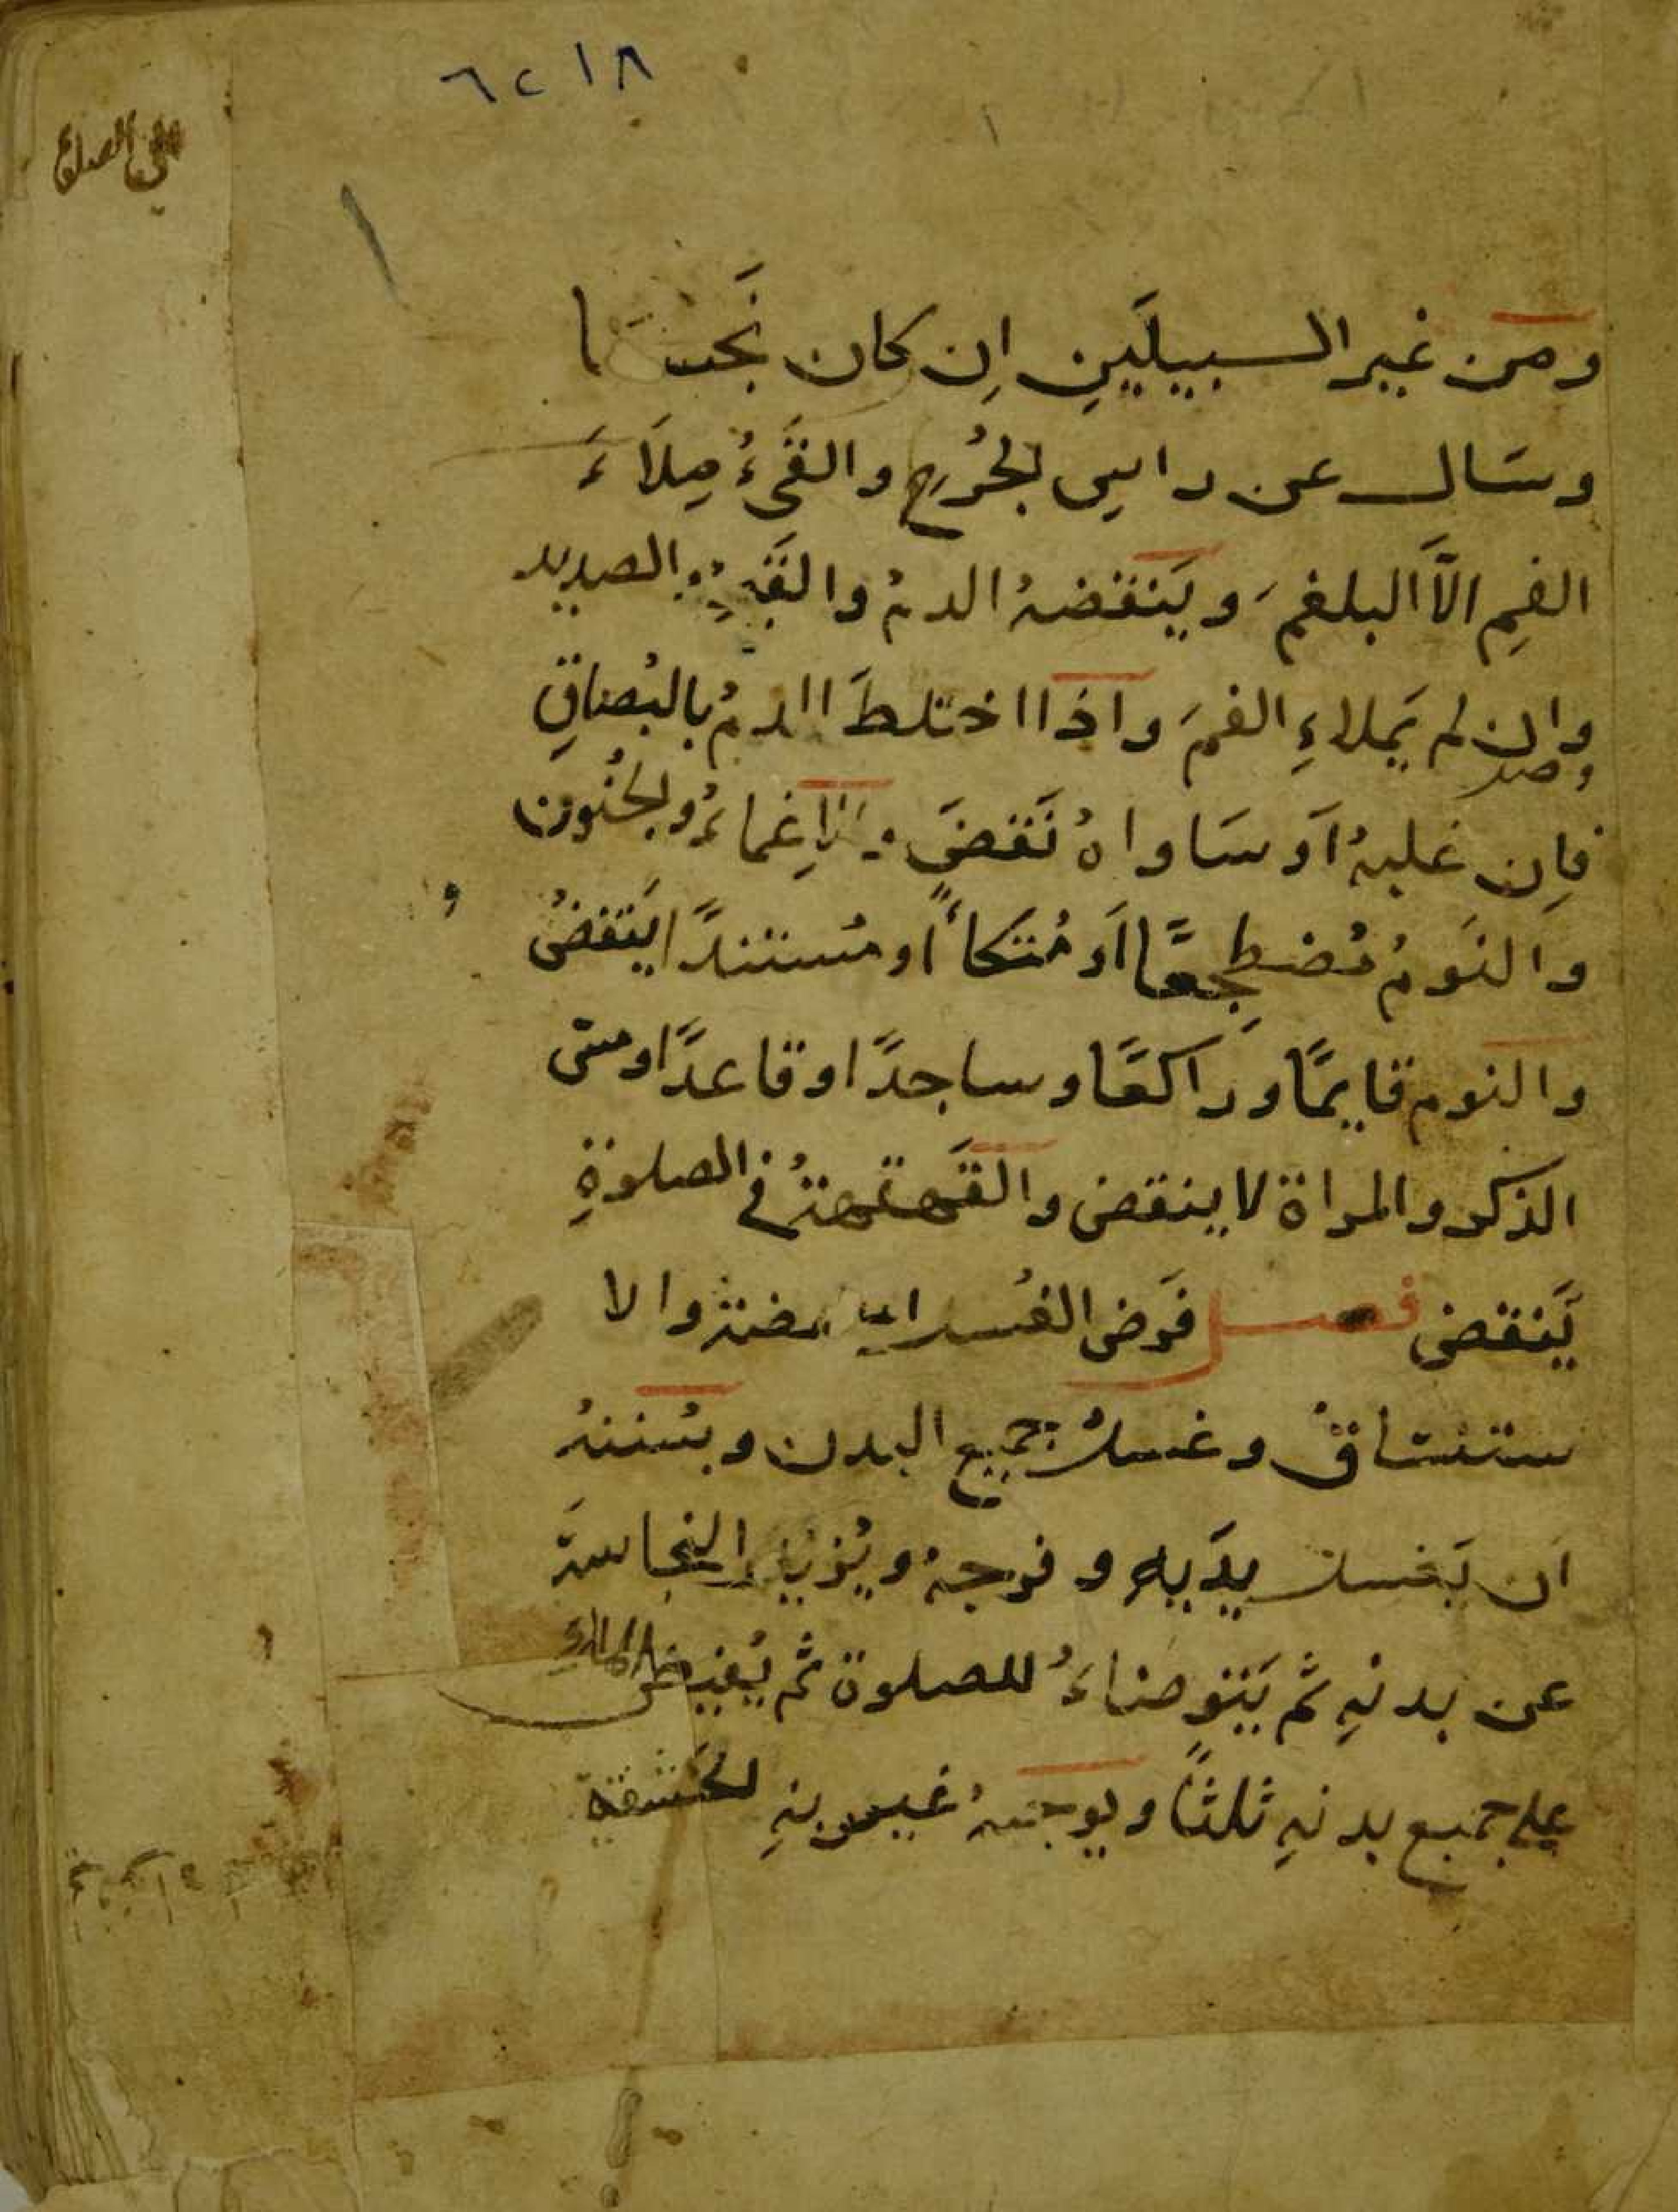 ٦٢١٨
ومن غير السبيلَينِ اِن كان نَجسًا
وسَال عن راسِ الجُرحِ والقَىءُ مِلَاءَ
الفمِ الاَّ البلغمَ وَيَنقضهُ الدمُ والقَيحُ والصديد
وان لم يَملاءِ الفمَ واذا اختلطَ الدمُ بالبُصاقِ
فاِن غلبهُ اَو سَاواهُ نَقضَ والاِغماءُ والجُنون
والنَومُ مُضطجِعًا اَو مُتكاً او مُستندًا يَنقضُ
والنوم قايمًا وراكعًا وساجدًا او قاعدًا ومسّ
الذكر والمراة لا ينقض والقَهقهتهُ في الصلوةِ
يَنقض فصل فَرض الغُسل المضمضة والا
ستنشاقُ وغسلُ جميع البدن وسُننهُ
اَن يَغسل يدَيهِ وفرجهُ ويُزيل النجاسةَ
عن بدنهِ ثُم يَتوضاءُ للصلوة ثم يُفيض الماء
على جميع بدنهِ ثلثًا ويوجبهُ غيبوبةِ الحَشفةِ